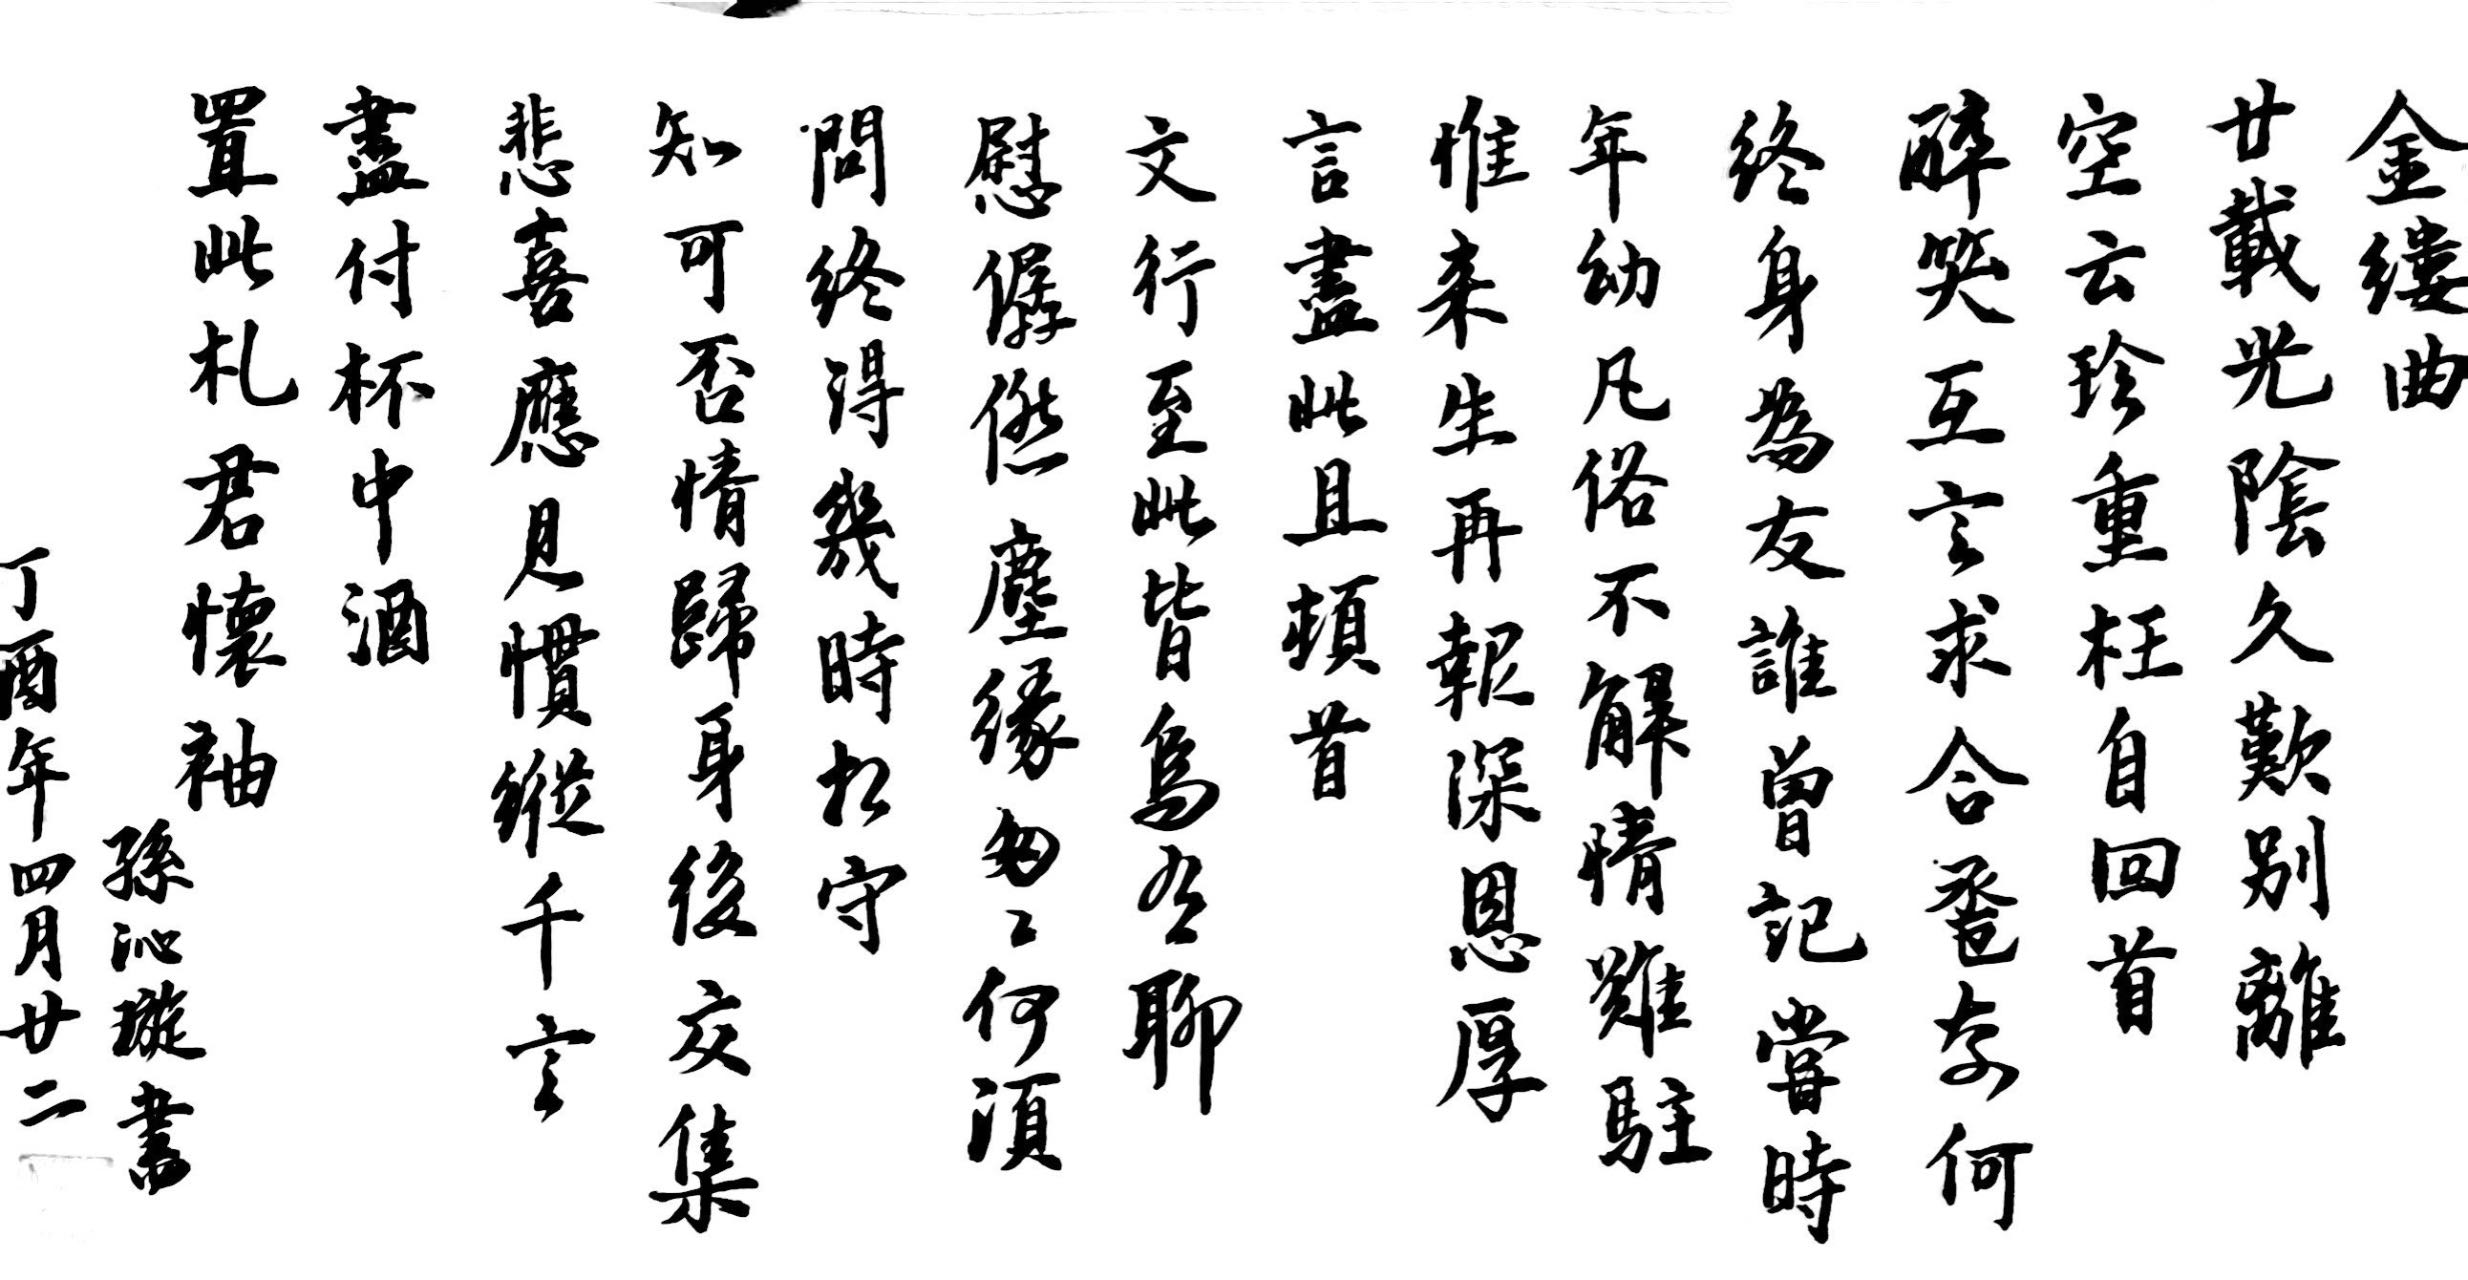 金缕曲
廿載光陰久歎別離
空云珍重枉自回首
醉笑互言求合巹奈何
終身為友誰曾記當時
年幼凡俗不解情難駐
惟来生再報深恩厚
言盡此且頓首
文行至此皆烏有聊
慰僝僽塵緣匆匆何須
問終得幾時相守
知可否情歸身後交集
悲喜應見慣縱千言
盡付杯中酒
置此札君懷袖
孫沁璇書
丁酉年四月廿二